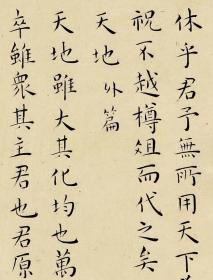 休乎君予無所用天下為
祝不越樽俎而代之矣
天地外篇
天地雖大其化均也萬
卒雖衆其主君也君原